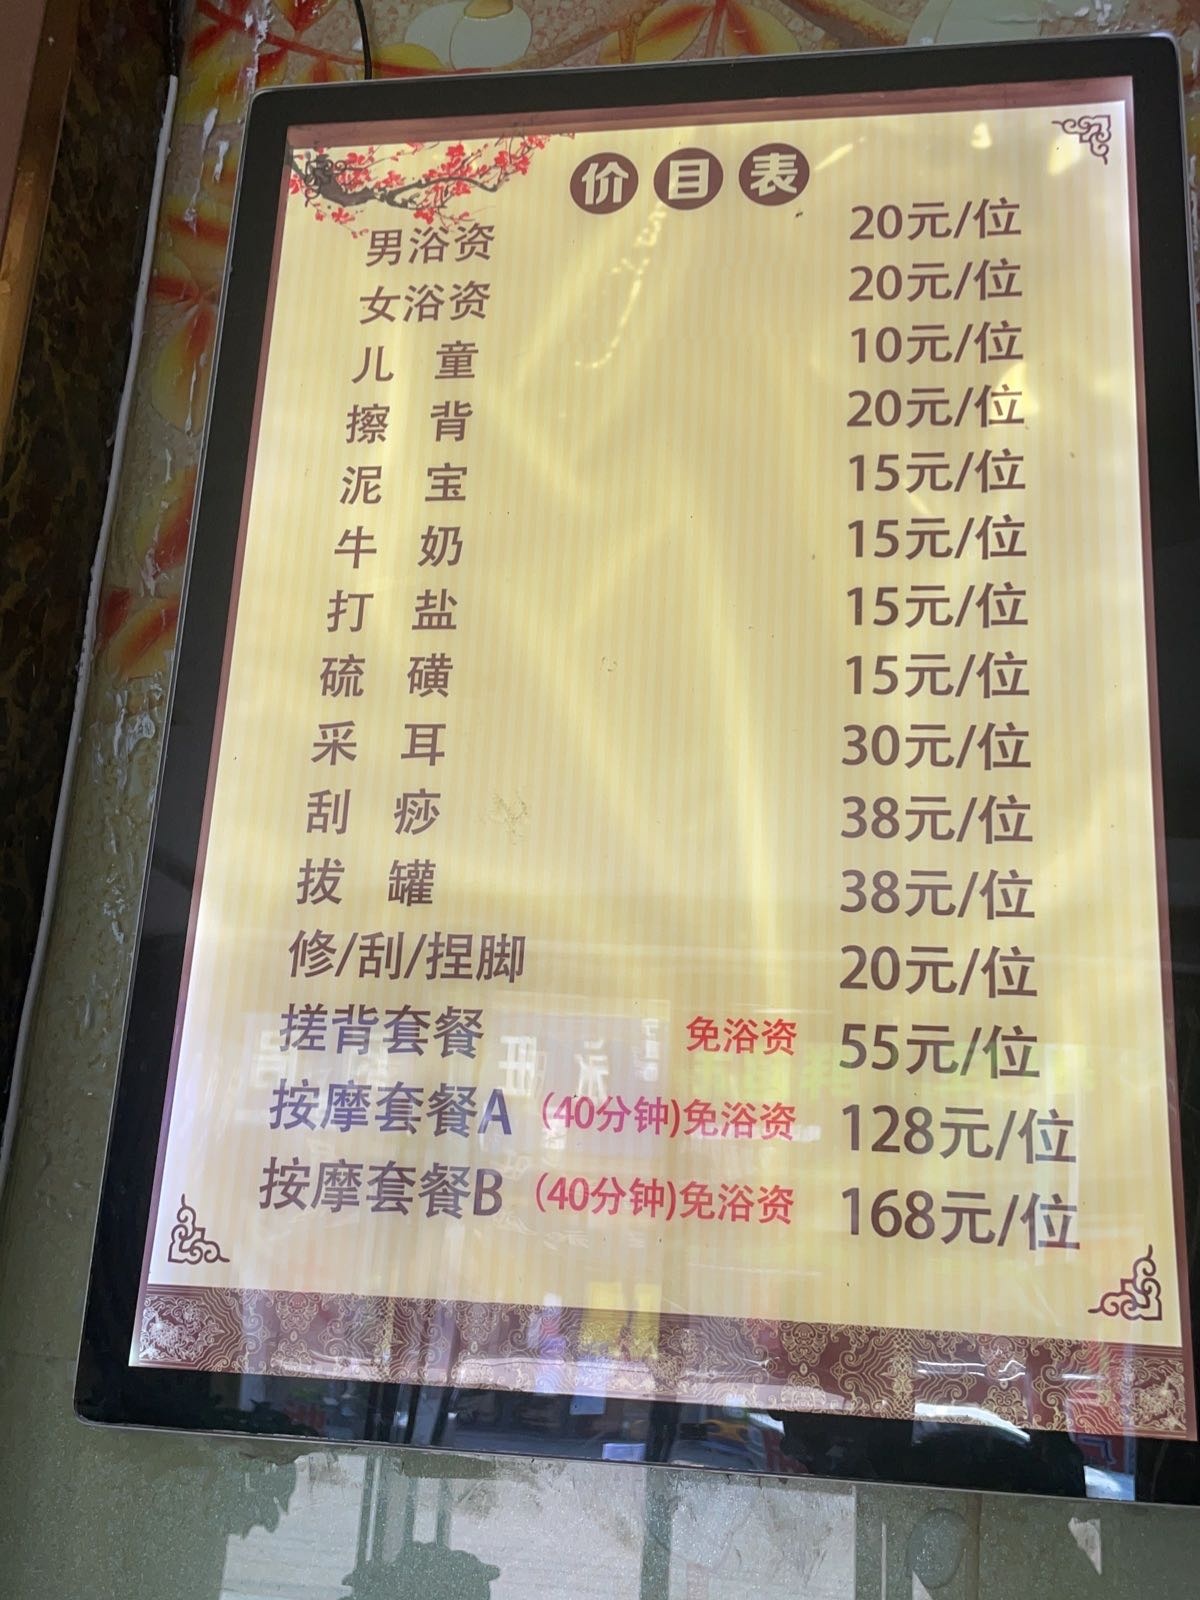 价目表
男浴资 20元/位
女浴资 20元/位
儿童 10元/位
擦背 20元/位
泥宝 15元/位
牛奶 15元/位
打盐 15元/位
硫磺 15元/位
采耳 30元/位
刮痧 38元/位
拔罐 38元/位
修/刮/捏脚 20元/位
搓背套餐 免浴资 55元/位
按摩套餐A (40分钟)免浴资 128元/位
按摩套餐B (40分钟)免浴资 168元/位